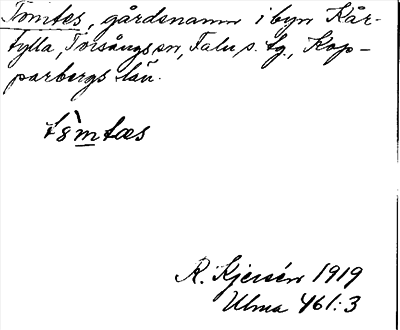 Tomtes, gårdsnamn i byn Kår-
tylla, Torsångs sn, Falu s. tg., Kop-
parbergs län.
R. Kjersén 1919
Ulma 461:3